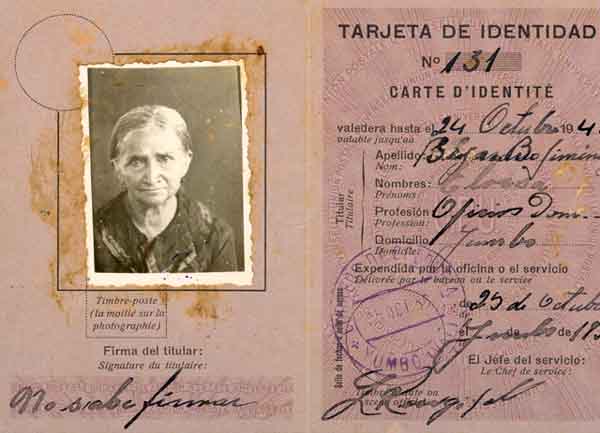 Timbre-poste
(la moitié sur la
photographie)
Firma del titular:
Signature du titulaire:
No sabe firmar
TARJETA DE IDENTIDAD
No 131
CARTE D'IDENTITÉ
valedera hasta el 24 Octubre 194
valable jusqu'au
Titular
Titulaire
Apellido:
Nom:
Nombres:
Prénoms:
Profesión Oficios Dom.
Profession:
Domicilio Yumbo
Domicile:
Expendida por la oficina o el servicio
Délivrée par le bureau ou le service
de 25 de Octubre
Yumbo de 193
El Jefe del servicio:
Le Chef de service:
Timbre
YUMBO